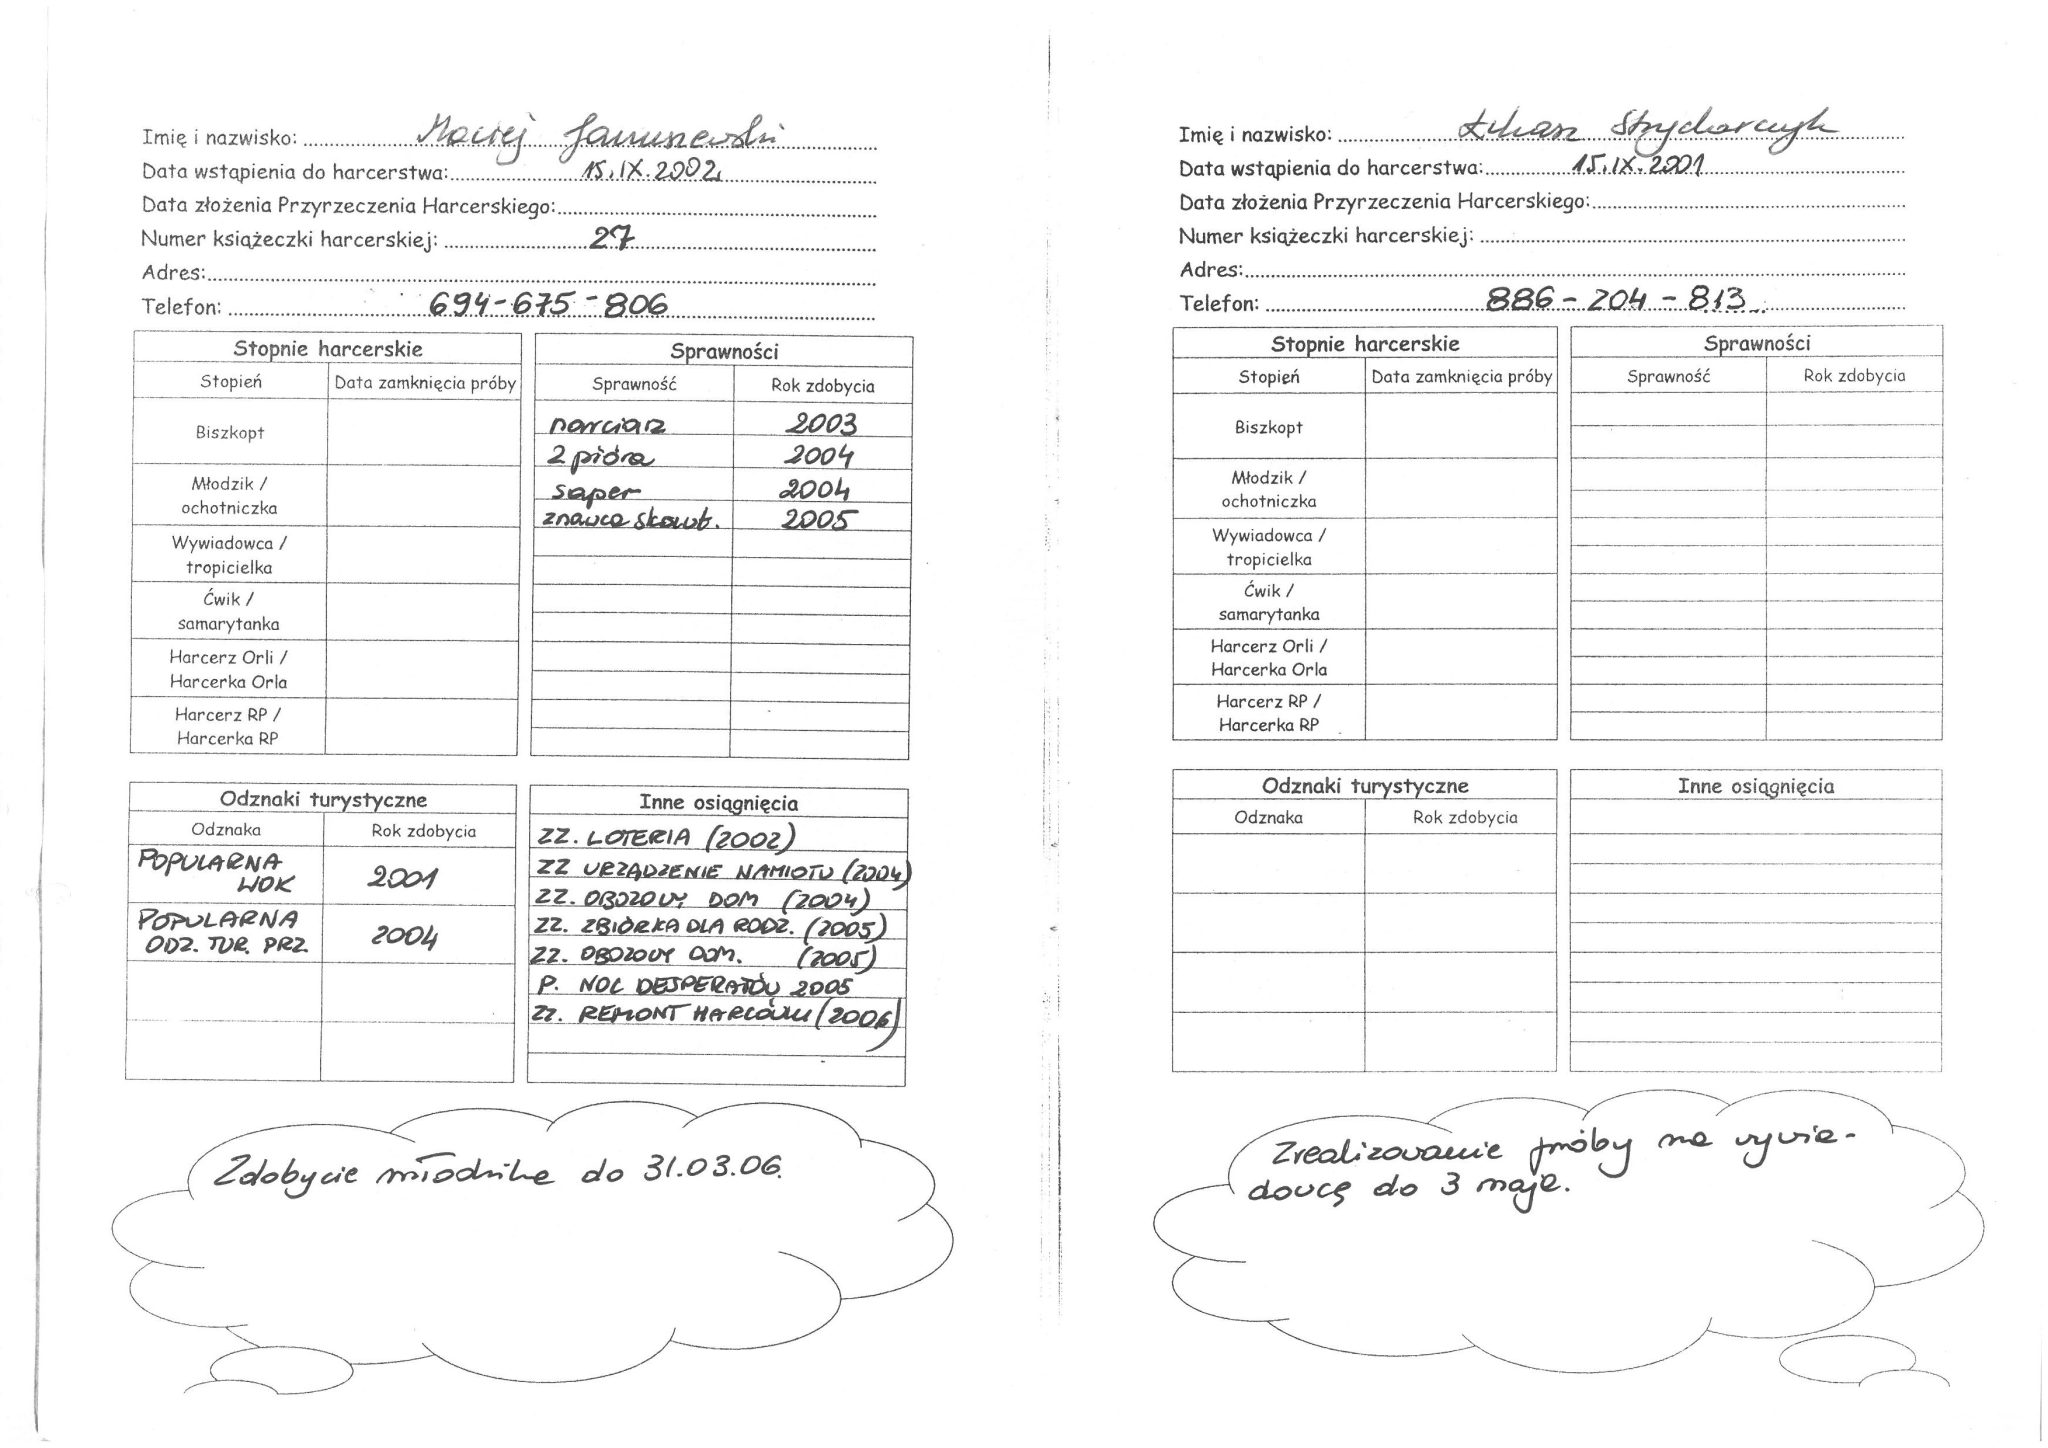 Imię i nazwisko: Maciej Januszewski
Data wstąpienia do harcerstwa: 15.IX.2002
Data złożenia Przyrzeczenia Harcerskiego:
Numer książeczki harcerskiej: 27
Adres:
Telefon: 694-675-806
Stopnie harcerskie
Stopień Data zamknięcia próby
Biszkopt
Młodzik /
ochotniczka
Wywiadowca /
tropicielka
Ćwik /
samarytanka
Harcerz Orli /
Harcerka Orla
Harcerz RP /
Harcerka RP
Sprawności
Sprawność Rok zdobycia
narciarz 2003
2 pióra 2004
saper 2004
znawca skaut. 2005
Odznaki turystyczne
Odznaka Rok zdobycia
POPULARNA
WOK 2001
POPULARNA
ODZ. TUR. PRZ. 2004
Inne osiągnięcia
ZZ. LOTERIA (2002)
ZZ URZĄDZENIE NAMIOTU (2004)
ZZ. OBOZOWY DOM (2004)
ZZ. ZBIÓRKA DLA RODZ. (2005)
ZZ. OBOZOWY DOM. (2005)
P. NOC DESPERATÓW 2005
ZZ. REMONT HARCÓWKI (2006)
Zdobycie młodzika do 31.03.06.
Imię i nazwisko: Łukasz Strycharczyk
Data wstąpienia do harcerstwa: 15.IX.2001
Data złożenia Przyrzeczenia Harcerskiego:
Numer książeczki harcerskiej:
Adres:
Telefon: 886-204-813
Stopnie harcerskie
Stopień Data zamknięcia próby
Biszkopt
Młodzik /
ochotniczka
Wywiadowca /
tropicielka
Ćwik /
samarytanka
Harcerz Orli /
Harcerka Orla
Harcerz RP /
Harcerka RP
Sprawności
Sprawność Rok zdobycia
Odznaki turystyczne
Odznaka Rok zdobycia
Inne osiągnięcia
Zrealizowanie próby na wywia-
dowcę do 3 maja.